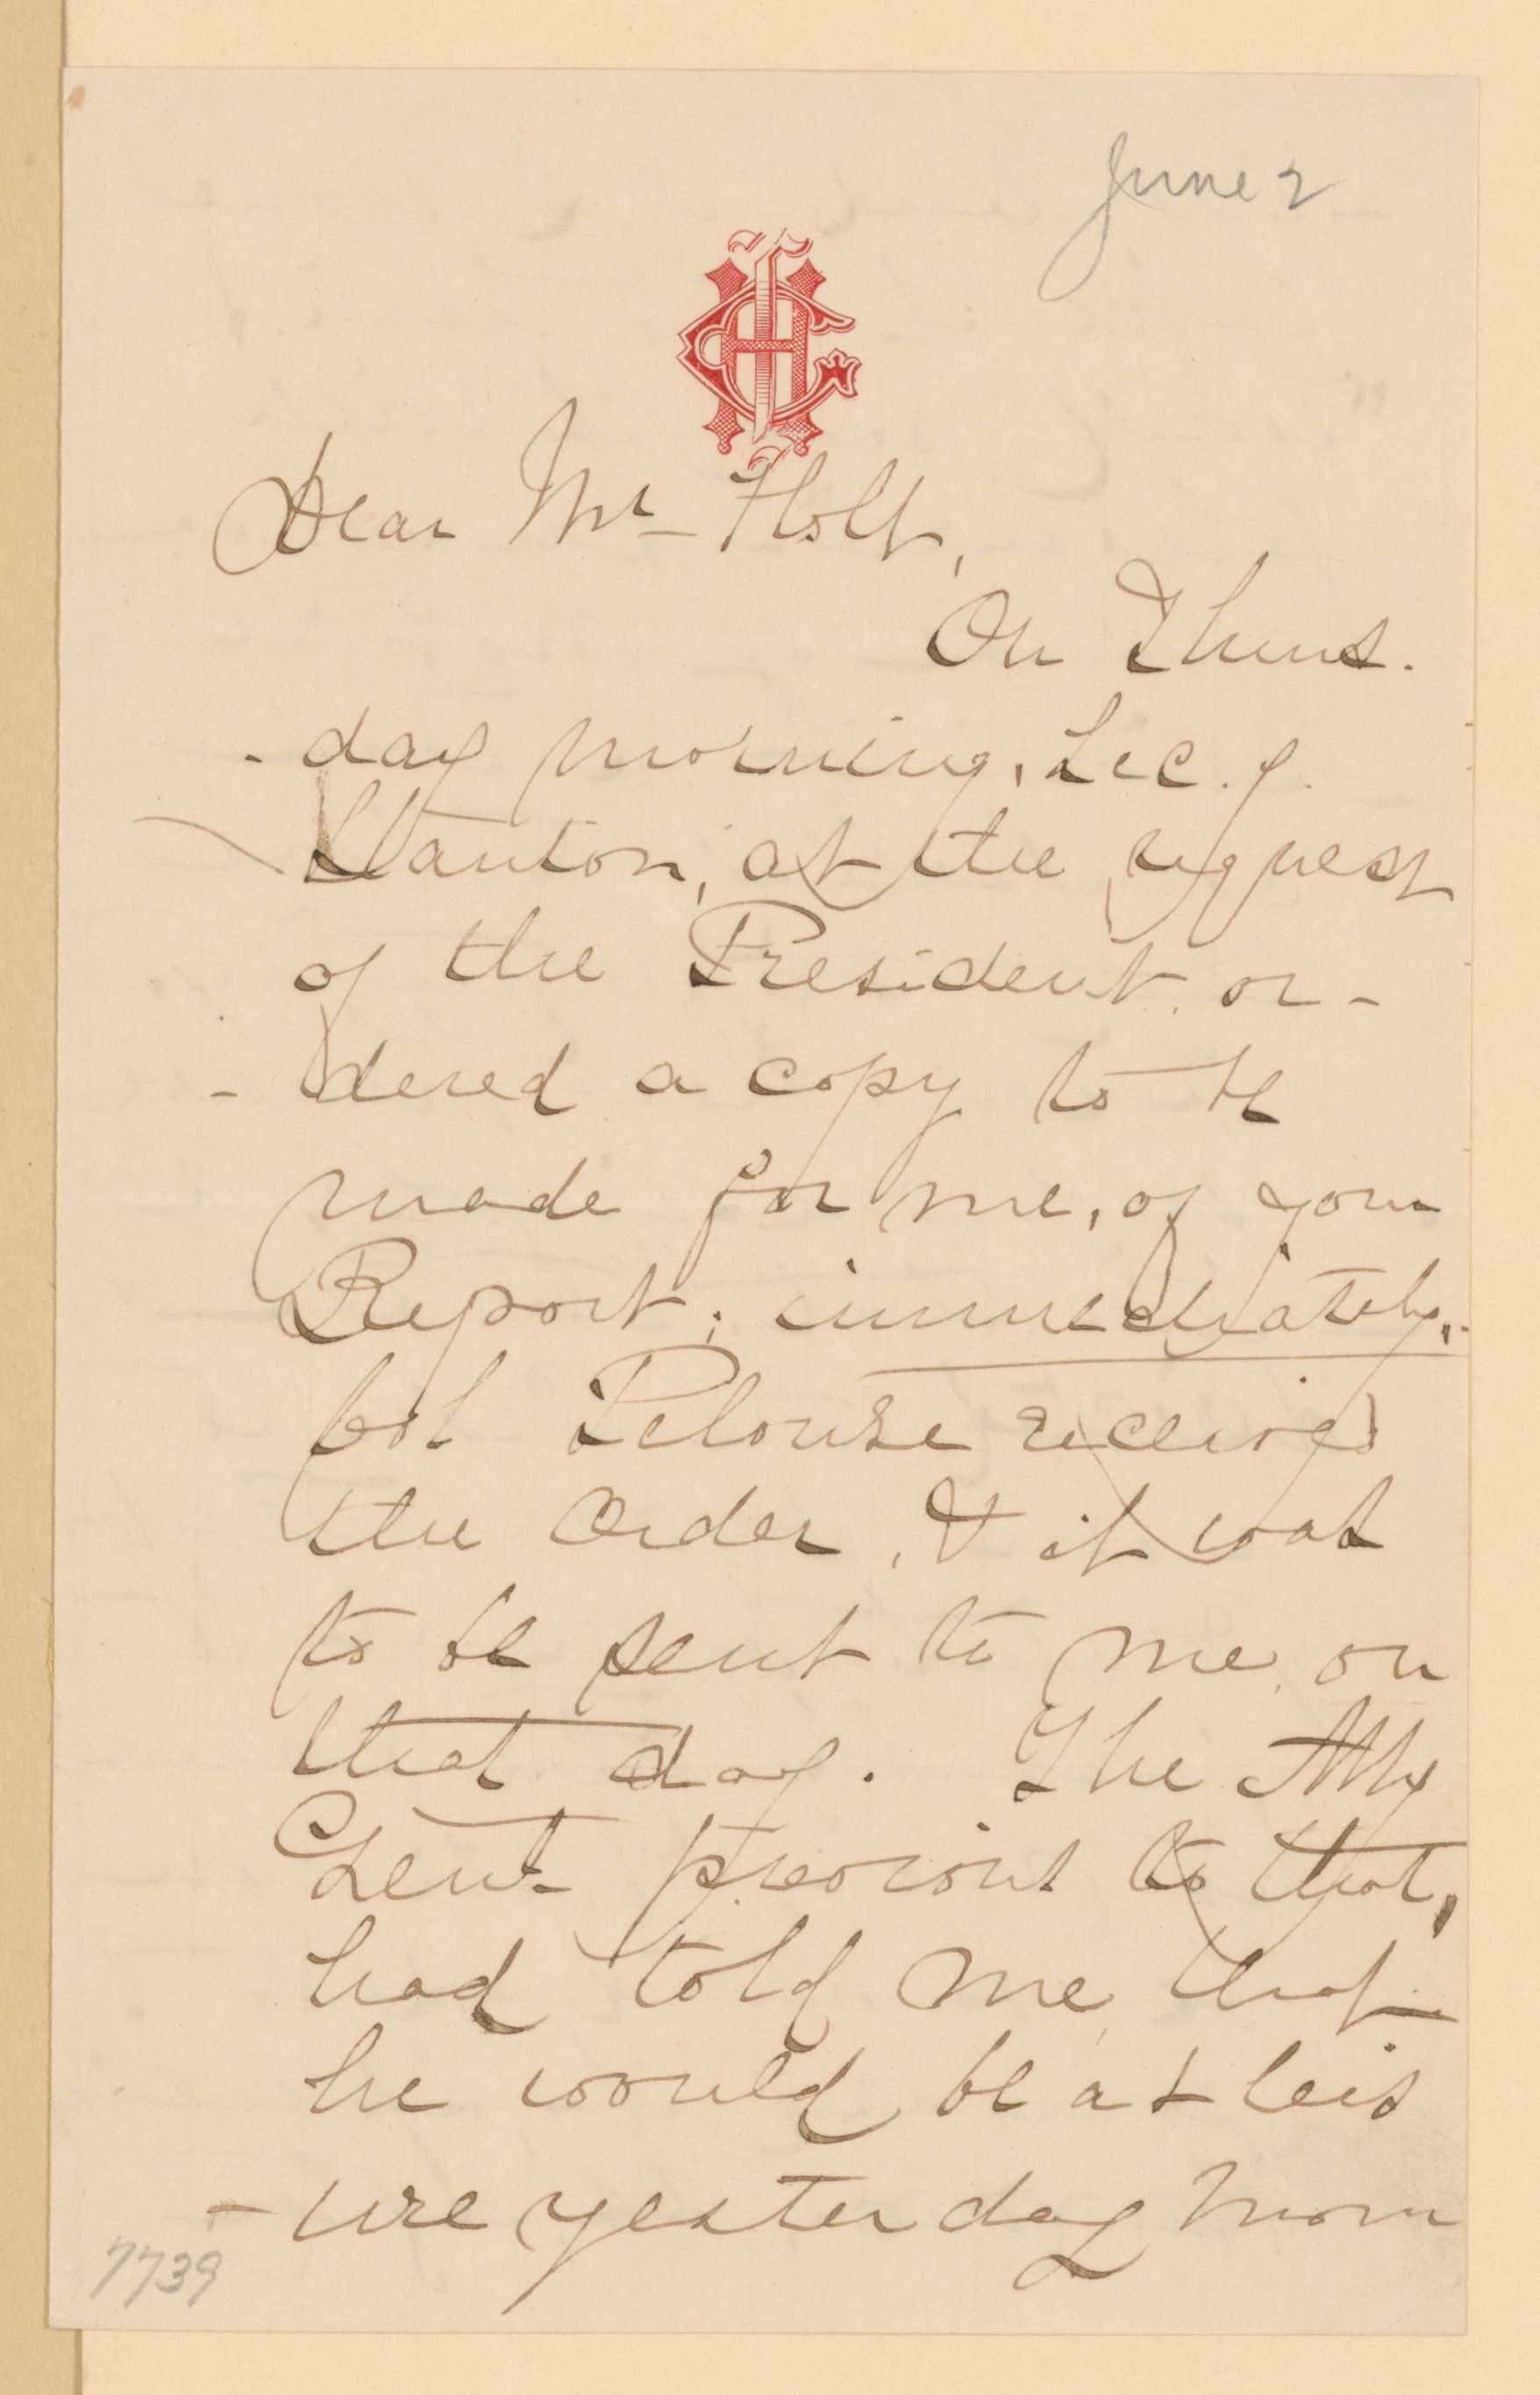 June 2
Dear Mr Holt,
On Thurs.
- day morning, Secy.
Stanton, at the request
of the President, or -
- dered a copy to be
made for me, of your
Report; immediately,
Col Pelouze received
the Order, & it was
to be sent to me, on
that day. The Atty
Genl. previous to that,
had told me, that
he would be at leis
- ure yesterday morn
7739